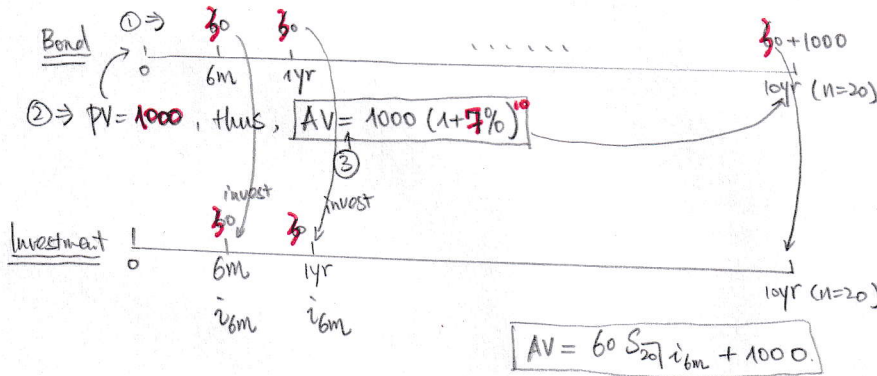 ① ⇒ 30 30 ...... 30 + 1000
Bond
0 6m 1yr 10yr (n=20)
② ⇒ PV = 1000, thus, AV = 1000 (1+7%)^10
③
invest invest
30 30
Investment
0 6m 1yr 10yr (n=20)
i6m i6m
AV = 60 S20| i6m + 1000.